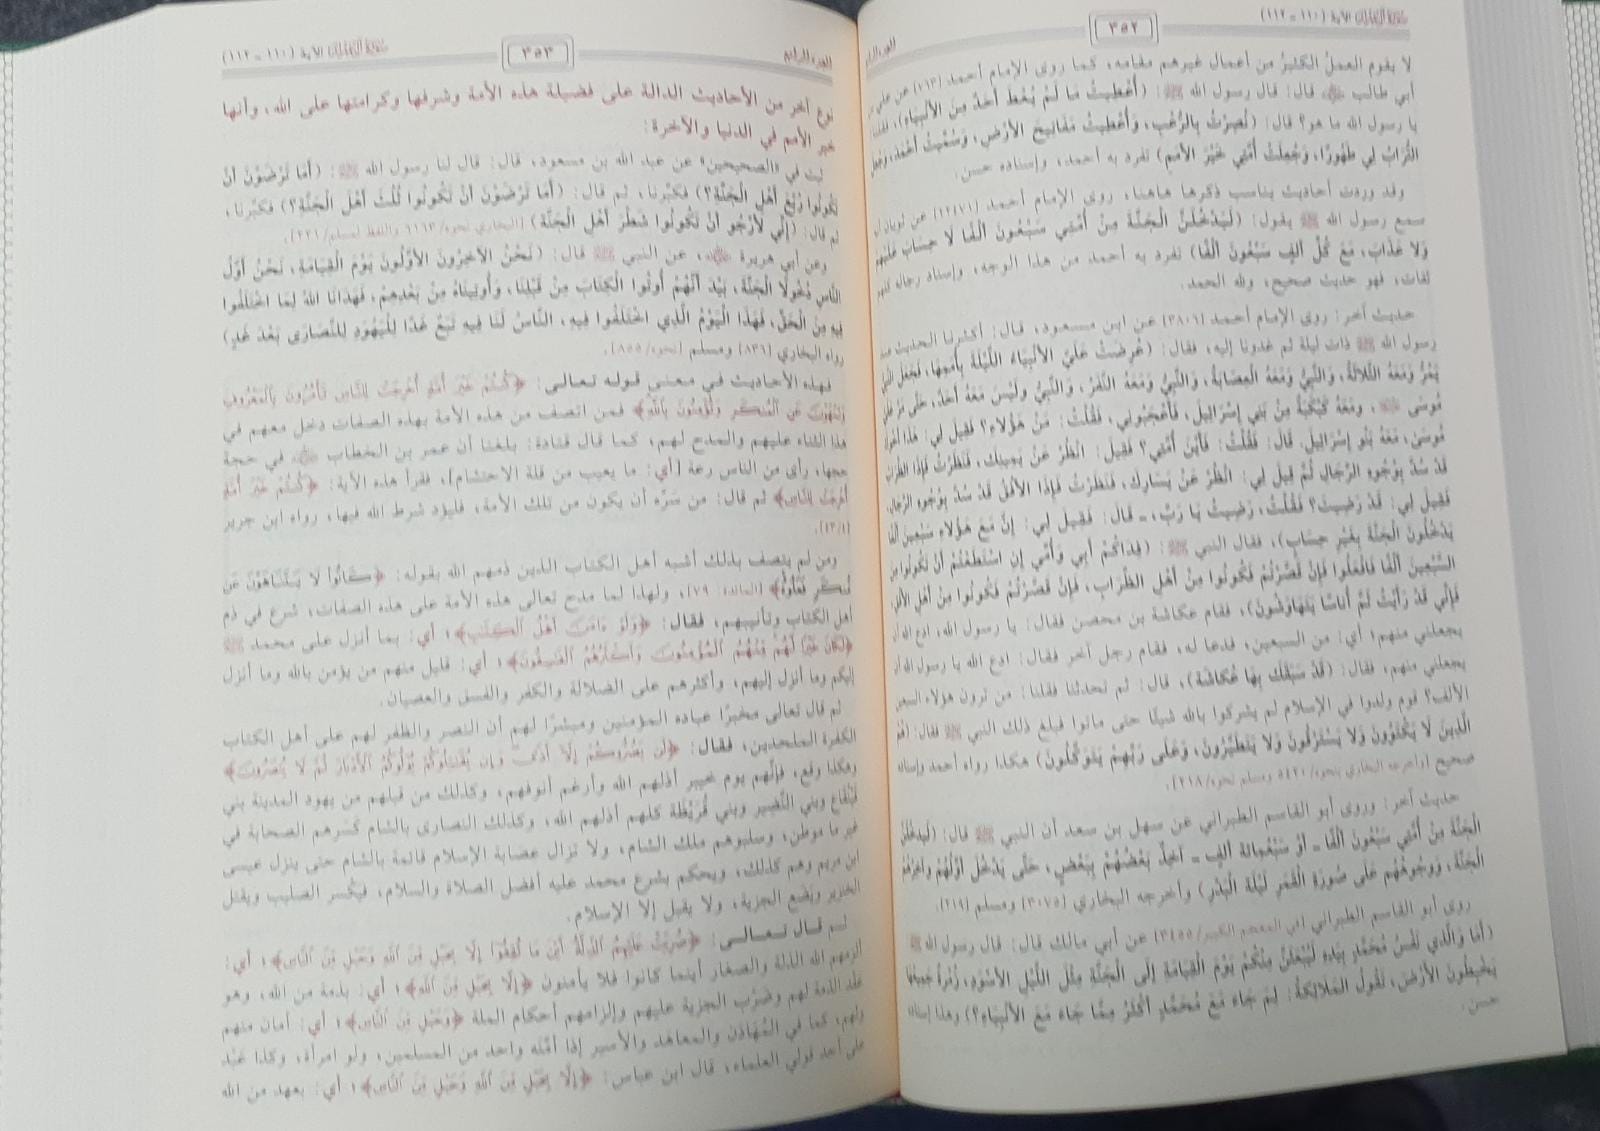 سورة آل عمران الآية (١١٠ - ١١٢)
٣٥٢
الجزء الرابع
لا يقوم العملُ الكثيرُ من أعمال غيرهم مقامه، كما روى الإمام أحمد (٧٦٣) عن علي بن
أبي طالب ﵁ قال: قال رسول الله ﷺ: (أُعْطِيتُ مَا لَمْ يُعْطَ أَحَدٌ مِنَ الأَنْبِيَاءِ)، فقلنا:
يا رسول الله ما هو؟ قال: (نُصِرْتُ بِالرُّعْبِ، وَأُعْطِيتُ مَفَاتِيحَ الأَرْضِ، وَسُمِّيتُ أَحْمَدَ، وَجُعِلَ
التُّرَابُ لِي طَهُورًا، وَجُعِلَتْ أُمَّتِي خَيْرَ الأُمَمِ) تفرد به أحمد، وإسناده حسن.
وقد وردت أحاديث يناسب ذكرها هاهنا، روى الإمام أحمد عن ثوبان
سمع رسول الله ﷺ يقول: (لَيَدْخُلَنَّ الْجَنَّةَ مِنْ أُمَّتِي سَبْعُونَ أَلْفًا لَا حِسَابَ عَلَيْهِمْ
وَلَا عَذَابَ، مَعَ كُلِّ أَلْفٍ سَبْعُونَ أَلْفًا) تفرد به أحمد من هذا الوجه، وإسناد رجاله كلهم
ثقات، فهو حديث صحيح، ولله الحمد.
حديث آخر: روى الإمام أحمد (٣٨٠٦) عن ابن مسعود، قال: أكثرنا الحديث عند
رسول الله ﷺ ذات ليلة ثم غدونا إليه، فقال: (عُرِضَتْ عَلَيَّ الأَنْبِيَاءُ اللَّيْلَةَ بِأُمَمِهَا، فَجَعَلَ النَّبِيُّ
يَمُرُّ وَمَعَهُ الثَّلَاثَةُ، وَالنَّبِيُّ وَمَعَهُ الْعِصَابَةُ، وَالنَّبِيُّ وَمَعَهُ النَّفَرُ، وَالنَّبِيُّ وَلَيْسَ مَعَهُ أَحَدٌ، حَتَّى مَرَّ عَلَيَّ
مُوسَى ﷺ، وَمَعَهُ كَبْكَبَةٌ مِنْ بَنِي إِسْرَائِيلَ، فَأَعْجَبُونِي، فَقُلْتُ: مَنْ هَؤُلَاءِ؟ فَقِيلَ لِي: هَذَا أَخُوكَ
مُوسَى، مَعَهُ بَنُو إِسْرَائِيلَ. قَالَ: فَقُلْتُ: فَأَيْنَ أُمَّتِي؟ فَقِيلَ: انْظُرْ عَنْ يَمِينِكَ، فَنَظَرْتُ فَإِذَا الظِّرَابُ
قَدْ سُدَّ بِوُجُوهِ الرِّجَالِ ثُمَّ قِيلَ لِي: انْظُرْ عَنْ يَسَارِكَ، فَنَظَرْتُ فَإِذَا الأُفُقُ قَدْ سُدَّ بِوُجُوهِ الرِّجَالِ
فَقِيلَ لِي: قَدْ رَضِيتَ؟ فَقُلْتُ، رَضِيتُ يَا رَبِّ، ـ قَالَ: فَقِيلَ لِي: إِنَّ مَعَ هَؤُلَاءِ سَبْعِينَ أَلْفًا
يَدْخُلُونَ الْجَنَّةَ بِغَيْرِ حِسَابٍ)، فقال النبي ﷺ: (فِدَاكُمْ أَبِي وَأُمِّي إِنِ اسْتَطَعْتُمْ أَنْ تَكُونُوا مِنَ
السَّبْعِينَ أَلْفًا فَافْعَلُوا فَإِنْ قَصَّرْتُمْ فَكُونُوا مِنْ أَهْلِ الظِّرَابِ، فَإِنْ قَصَّرْتُمْ فَكُونُوا مِنْ أَهْلِ الأُفُقِ،
فَإِنِّي قَدْ رَأَيْتُ ثَمَّ أُنَاسًا يَتَهَاوَشُونَ)، فقام عكاشة بن محصن فقال: يا رسول الله، ادع الله أن
يجعلني منهم؛ أي: من السبعين، فدعا له، فقام رجل آخر فقال: ادع الله يا رسول الله أن
يجعلني منهم، فقال: (قَدْ سَبَقَكَ بِهَا عُكَاشَةُ)، قال: ثم تحدثنا فقلنا: من ترون هؤلاء السبعين
الألف؟ قوم ولدوا في الإسلام لم يشركوا بالله شيئًا حتى ماتوا فبلغ ذلك النبي ﷺ فقال: (هُمُ
الَّذِينَ لَا يَكْتَوُونَ وَلَا يَسْتَرْقُونَ وَلَا يَتَطَيَّرُونَ، وَعَلَى رَبِّهِمْ يَتَوَكَّلُونَ) هكذا رواه أحمد وإسناده
صحيح [وأخرجه البخاري بنحوه/ ٥٤٢٠ ومسلم نحوه/ ٢١٨].
حديث آخر: وروى أبو القاسم الطبراني عن سهل بن سعد أن النبي ﷺ قال: (لَيَدْخُلَنَّ
الْجَنَّةَ مِنْ أُمَّتِي سَبْعُونَ أَلْفًا ـ أَوْ سَبْعُمِائَةِ أَلْفٍ ـ آخِذٌ بَعْضُهُمْ بِبَعْضٍ، حَتَّى يَدْخُلَ أَوَّلُهُمْ وَآخِرُهُمُ
الْجَنَّةَ، وَوُجُوهُهُمْ عَلَى صُورَةِ الْقَمَرِ لَيْلَةَ الْبَدْرِ) وأخرجه البخاري [٣٠٧٥] ومسلم [٢١٩].
روى أبو القاسم الطبراني [في المعجم الكبير/ ٣٤٥٥] عن أبي مالك قال: قال رسول الله ﷺ
(أَمَا وَالَّذِي نَفْسُ مُحَمَّدٍ بِيَدِهِ لَيُبْعَثَنَّ مِنْكُمْ يَوْمَ الْقِيَامَةِ إِلَى الْجَنَّةِ مِثْلَ اللَّيْلِ الأَسْوَدِ، زُمْرَةٌ جَمِيعُهَا
يُحِيطُونَ الأَرْضَ، تَقُولُ الْمَلَائِكَةُ: لِمَ جَاءَ مَعَ مُحَمَّدٍ أَكْثَرُ مِمَّا جَاءَ مَعَ الأَنْبِيَاءِ؟) وهذا إسناد
حسن.
الجزء الرابع
٣٥٣
سورة آل عمران الآية (١١٠ - ١١٢)
نوع آخر من الأحاديث الدالة على فضيلة هذه الأمة وشرفها وكرامتها على الله، وأنها
خير الأمم في الدنيا والآخرة:
ثبت في «الصحيحين» عن عبد الله بن مسعود، قال: قال لنا رسول الله ﷺ: (أَمَا تَرْضَوْنَ أَنْ
تَكُونُوا رُبْعَ أَهْلِ الْجَنَّةِ؟) فكبّرنا، ثم قال: (أَمَا تَرْضَوْنَ أَنْ تَكُونُوا ثُلُثَ أَهْلِ الْجَنَّةِ؟) فكبّرنا،
ثم قال: (إِنِّي لَأَرْجُو أَنْ تَكُونُوا شَطْرَ أَهْلِ الْجَنَّةِ) [البخاري نحوه/ ٦١٦٣ واللفظ لمسلم/ ٢٢١].
وعن أبي هريرة ﵁، عن النبي ﷺ قال: (نَحْنُ الآخِرُونَ الأَوَّلُونَ يَوْمَ الْقِيَامَةِ، نَحْنُ أَوَّلُ
النَّاسِ دُخُولًا الْجَنَّةَ، بَيْدَ أَنَّهُمْ أُوتُوا الْكِتَابَ مِنْ قَبْلِنَا، وَأُوتِينَاهُ مِنْ بَعْدِهِمْ، فَهَدَانَا اللهُ لِمَا اخْتَلَفُوا
فِيهِ مِنَ الْحَقِّ، فَهَذَا الْيَوْمُ الَّذِي اخْتَلَفُوا فِيهِ، النَّاسُ لَنَا فِيهِ تَبَعٌ غَدًا لِلْيَهُودِ لِلنَّصَارَى بَعْدَ غَدٍ)
رواه البخاري [٨٣٦] ومسلم [نحوه/ ٨٥٥].
فهذه الأحاديث في معنى قوله تعالى: ﴿كُنْتُمْ خَيْرَ أُمَّةٍ أُخْرِجَتْ لِلنَّاسِ تَأْمُرُونَ بِالْمَعْرُوفِ
وَتَنْهَوْنَ عَنِ الْمُنْكَرِ وَتُؤْمِنُونَ بِاللَّهِ﴾ فمن اتصف من هذه الأمة بهذه الصفات دخل معهم في
هذا الثناء عليهم والمدح لهم، كما قال قتادة: بلغنا أن عمر بن الخطاب ﵁ في حجة
حجها، رأى من الناس رعة [أي: ما يعيب من قلة الاحتشام]، فقرأ هذه الآية: ﴿كُنْتُمْ خَيْرَ أُمَّةٍ
أُخْرِجَتْ لِلنَّاسِ﴾ ثم قال: من سَرَّه أن يكون من تلك الأمة، فليؤد شرط الله فيها، رواه ابن جرير
ومن لم يتصف بذلك أشبه أهل الكتاب الذين ذمهم الله بقوله: ﴿كَانُوا لَا يَتَنَاهَوْنَ عَنْ
مُنْكَرٍ فَعَلُوهُ﴾ [المائدة: ٧٩]، ولهذا لما مدح تعالى هذه الأمة على هذه الصفات، شرع في ذم
أهل الكتاب وتأنيبهم، فقال: ﴿وَلَوْ ءَامَنَ أَهْلُ الْكِتَابِ﴾؛ أي: بما أنزل على محمد ﷺ
﴿لَكَانَ خَيْرًا لَهُمْ مِنْهُمُ الْمُؤْمِنُونَ وَأَكْثَرُهُمُ الْفَاسِقُونَ﴾؛ أي: قليل منهم من يؤمن بالله وما أنزل
إليكم وما أنزل إليهم، وأكثرهم على الضلالة والكفر والفسق والعصيان.
ثم قال تعالى مخبرًا عباده المؤمنين ومبشرًا لهم أن النصر والظفر لهم على أهل الكتاب
الكفرة الملحدين، فقال: ﴿لَنْ يَضُرُّوكُمْ إِلَّا أَذًى وَإِنْ يُقَاتِلُوكُمْ يُوَلُّوكُمُ الْأَدْبَارَ ثُمَّ لَا يُنْصَرُونَ﴾
وهكذا وقع، فإنّهم يوم خيبر أذلهم الله وأرغم أنوفهم، وكذلك من قبلهم من يهود المدينة بني
قينُقاع وبني النَّضِير وبني قُرَيْظَة كلهم أذلهم الله، وكذلك النصارى بالشام كسَرهم الصحابة في
غير ما موطن، وسلبوهم ملك الشام، ولا تزال عصابة الإسلام قائمة بالشام حتى ينزل عيسى
ابن مريم وهم كذلك، ويحكم بشرع محمد عليه أفضل الصلاة والسلام، فيكسر الصليب ويقتل
الخنزير ويضع الجزية، ولا يقبل إلا الإسلام.
ثم قال تعالى: ﴿ضُرِبَتْ عَلَيْهِمُ الذِّلَّةُ أَيْنَ مَا ثُقِفُوا إِلَّا بِحَبْلٍ مِنَ اللَّهِ وَحَبْلٍ مِنَ النَّاسِ﴾؛ أي:
ألزمهم الله الذلة والصغار أينما كانوا فلا يأمنون ﴿إِلَّا بِحَبْلٍ مِنَ اللَّهِ﴾؛ أي: بذمة من الله، وهو
عقد الذمة لهم وضَرْب الجزية عليهم وإلزامهم أحكام الملة ﴿وَحَبْلٍ مِنَ النَّاسِ﴾؛ أي: أمان منهم
ولهم، كما في المُهَادَن والمعاهَد والأسير إذا أمَّنه واحد من المسلمين، ولو امرأة، وكذا عَبْد
على أحد قولي العلماء، قال ابن عباس: ﴿إِلَّا بِحَبْلٍ مِنَ اللَّهِ وَحَبْلٍ مِنَ النَّاسِ﴾؛ أي: بعهد من الله